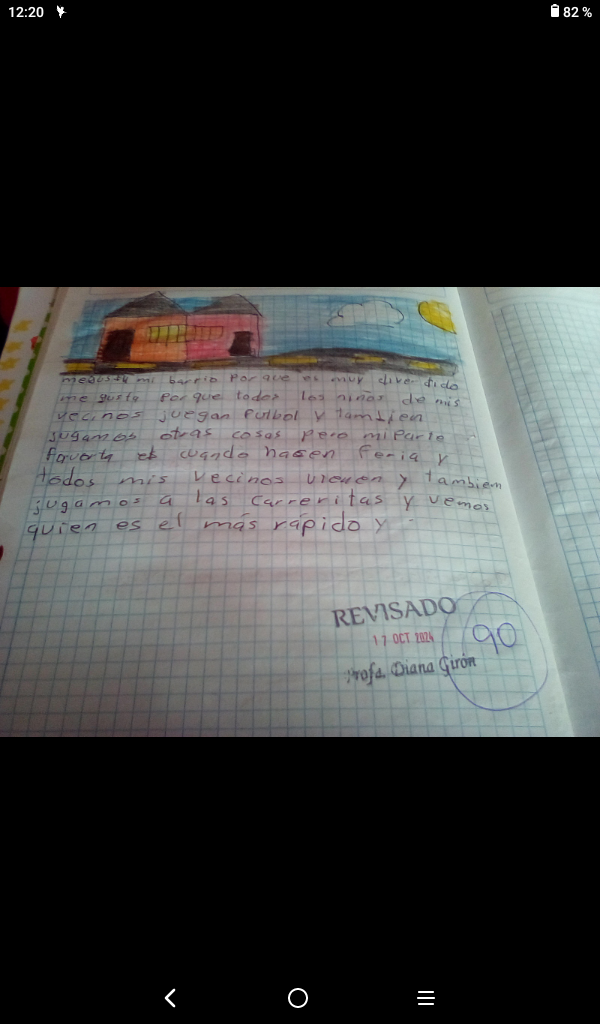 12:20
82 %
megusta mi barrio porque es muy diver dido
me gusta porque todos los niños de mis
vecinos juegan futbol y tambien
jugamos otras cosas pero miparte
favorta es cuando hasen feria y
todos mis vecinos vienen y tambien
jugamos a las carreritas y vemos
quien es el más rápido y
REVISADO
17 OCT 2024
90
Profa. Diana Girón